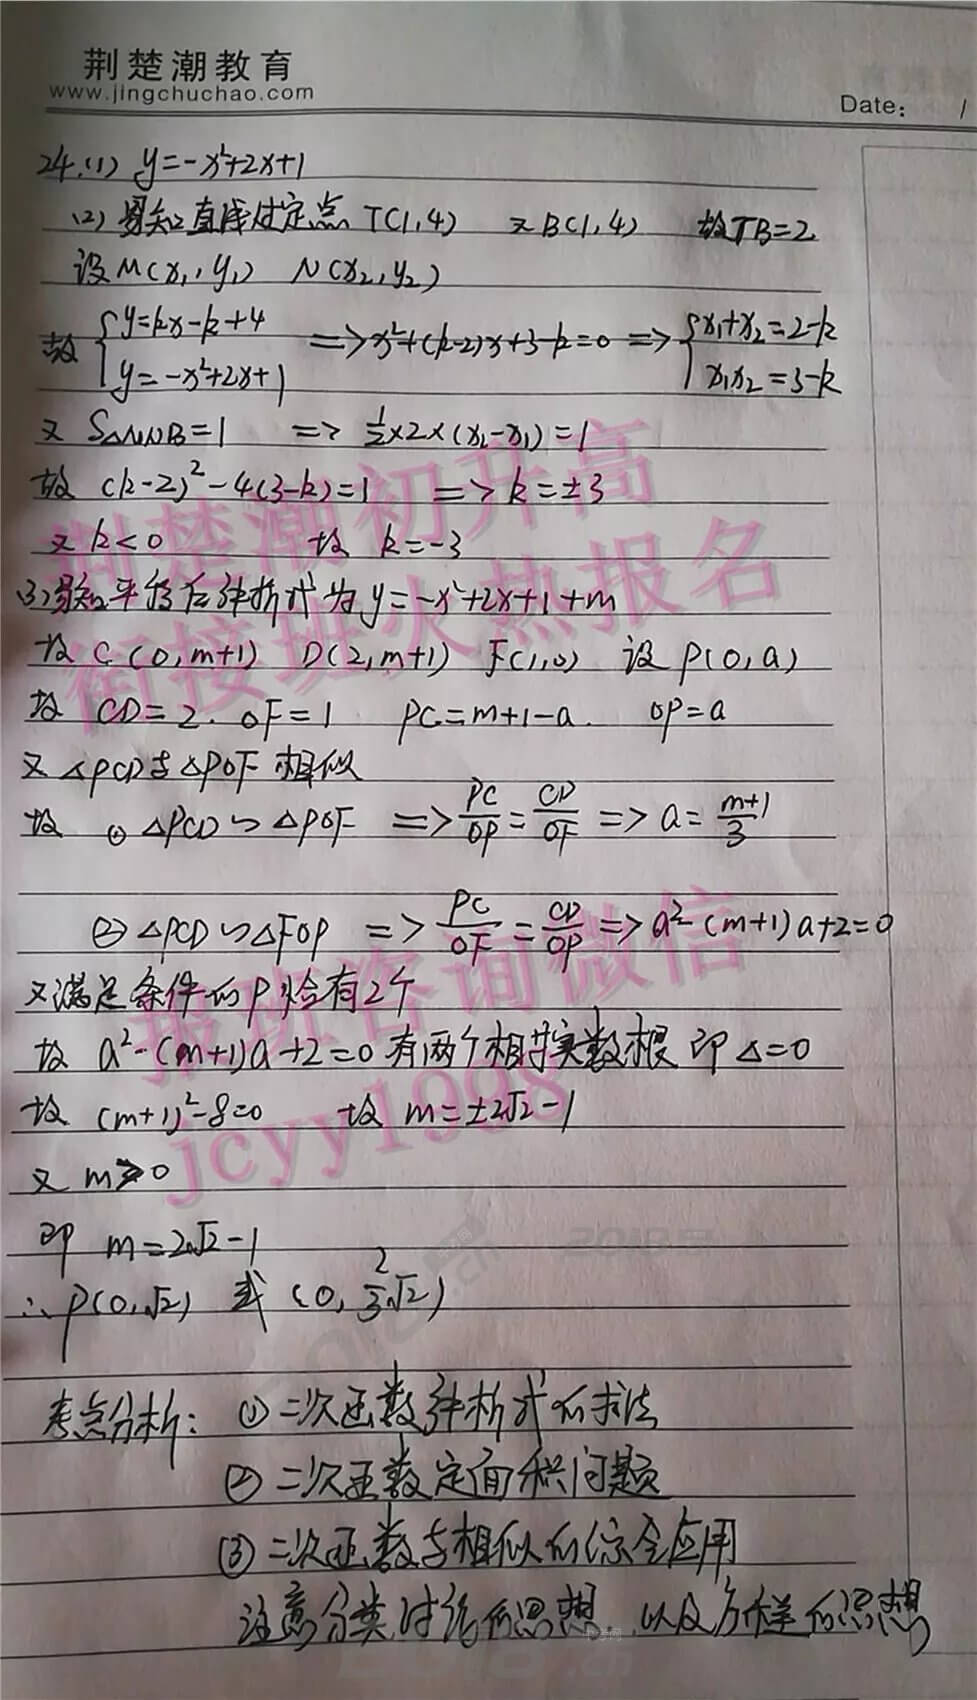 荆楚潮教育
www.jingchuchao.com
Date: /
24.(1) y=-x²+2x+1
(2) 易知直线过定点T(1,4) 又B(1,4) 故TB=2
设M(x₁,y₁) N(x₂,y₂)
故 {y=kx-k+4 y=-x²+2x+1 => x²+(k-2)x+3-k=0 => {x₁+x₂=2-k x₁x₂=3-k
又 S△MNB=1 => ½×2×(x₂-x₁)=1
故 (k-2)²-4(3-k)=1 => k=±3
又 k<0 故 k=-3
(3)易知平移后解析式为y=-x²+2x+1+m
故 C(0,m+1) D(2,m+1) F(1,0) 设P(0,a)
故 CD=2. OF=1 PC=m+1-a. OP=a
又△PCD与△POF相似
故 ①△PCD∽△POF => PC/OP=CD/OF => a=(m+1)/3
②△PCD∽△FOP => PC/OF=CD/OP => a²-(m+1)a+2=0
又满足条件的P恰有2个
故 a²-(m+1)a+2=0有两个相等实数根 即△=0
故 (m+1)²-8=0 故 m=±2√2-1
又 m>0
即 m=2√2-1
∴P(0,√2) 或 (0,2/3√2)
考点分析: ①二次函数解析式的求法
②二次函数定面积问题
③二次函数与相似的综合应用
注意分类讨论的思想,以及方程的思想
荆楚潮初升高
衔接班火热报名
报班咨询微信
jcyy1998